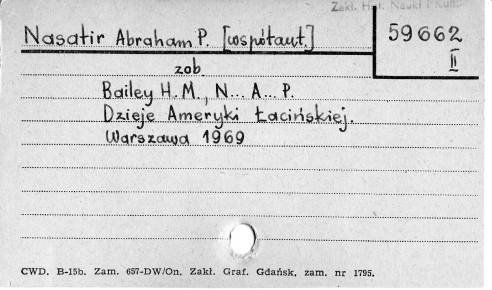 Zakł. Hist. Nauki i
Nasatir Abraham P. [współaut.]
59662
II
zob.
Bailey H.M., N... A... P.
Dzieje Ameryki Łacińskiej.
Warszawa 1969
CWD. B-15b. Zam. 657-DW/On. Zakł. Graf. Gdańsk, zam. nr 1795.